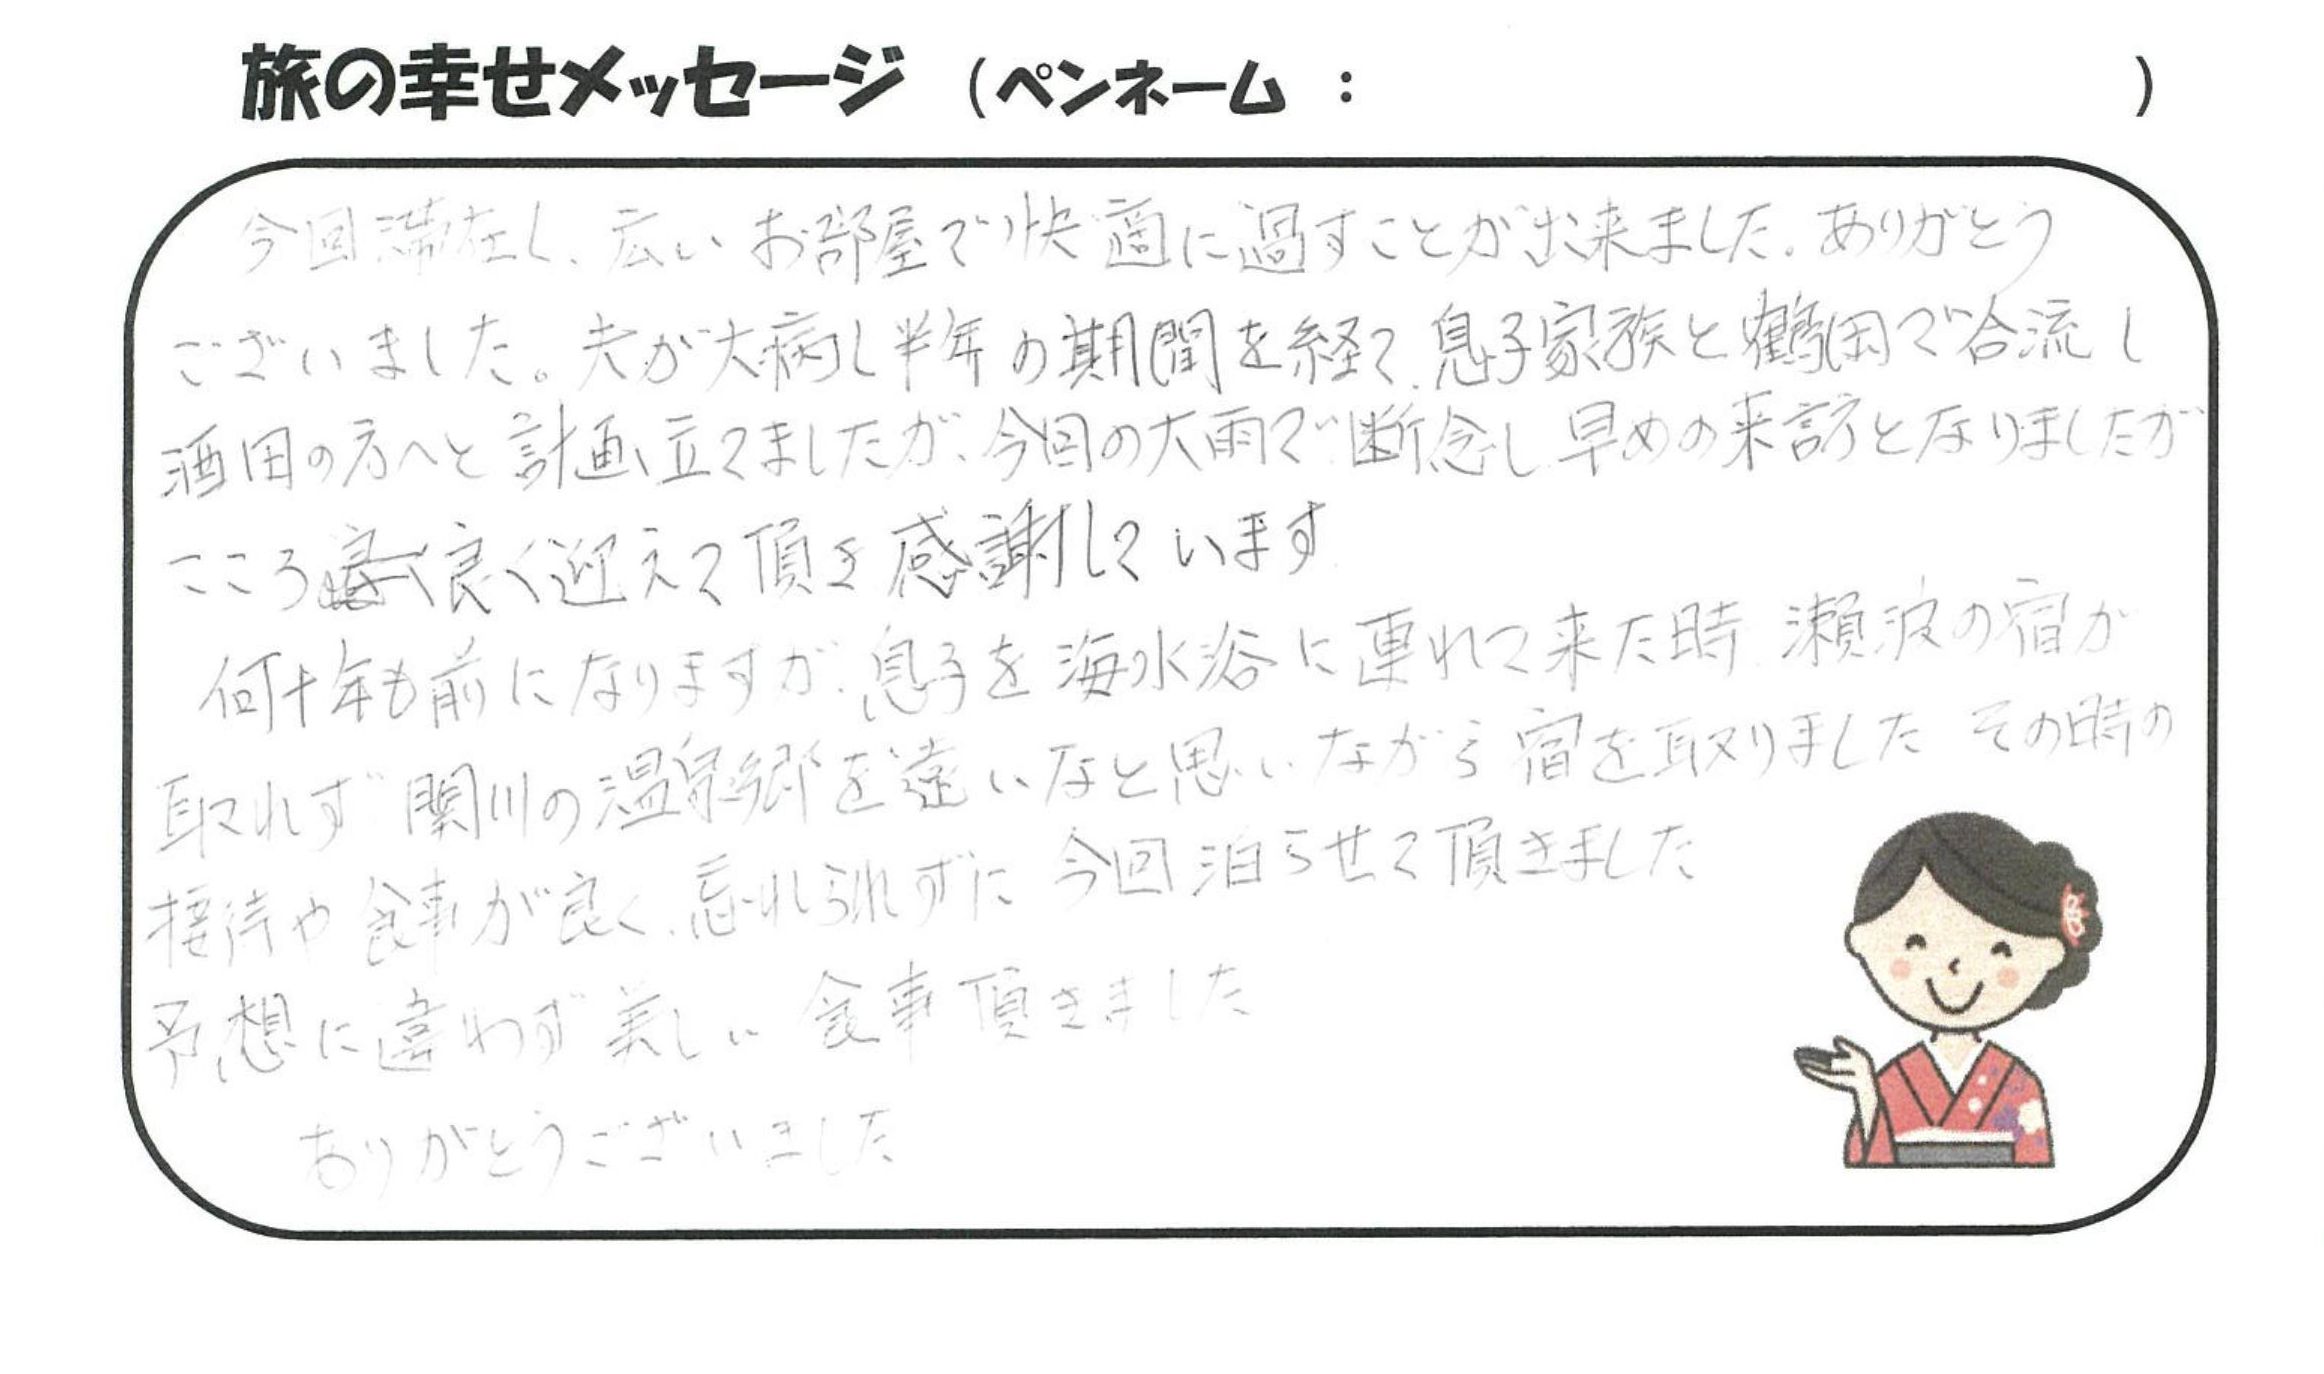 旅の幸せメッセージ (ペンネーム : )
今回滞在し、広いお部屋で快適に過すことが出来ました。ありがとう
ございました。夫が大病し半年の期間を経て、息子家族と鶴岡で合流し
酒田の方へと計画立てましたが、今回の大雨で断念し早めの来訪となりましたが
こころ良く迎えて頂き感謝しています
何十年も前になりますが、息子を海水浴に連れて来た時、瀬波の宿が
取れず関川の温泉郷を遠いなと思いながら宿を取りました その時の
接待や食事が良く、忘れられずに今回泊らせて頂きました
予想に違わず美しい食事頂きました
ありがとうございました